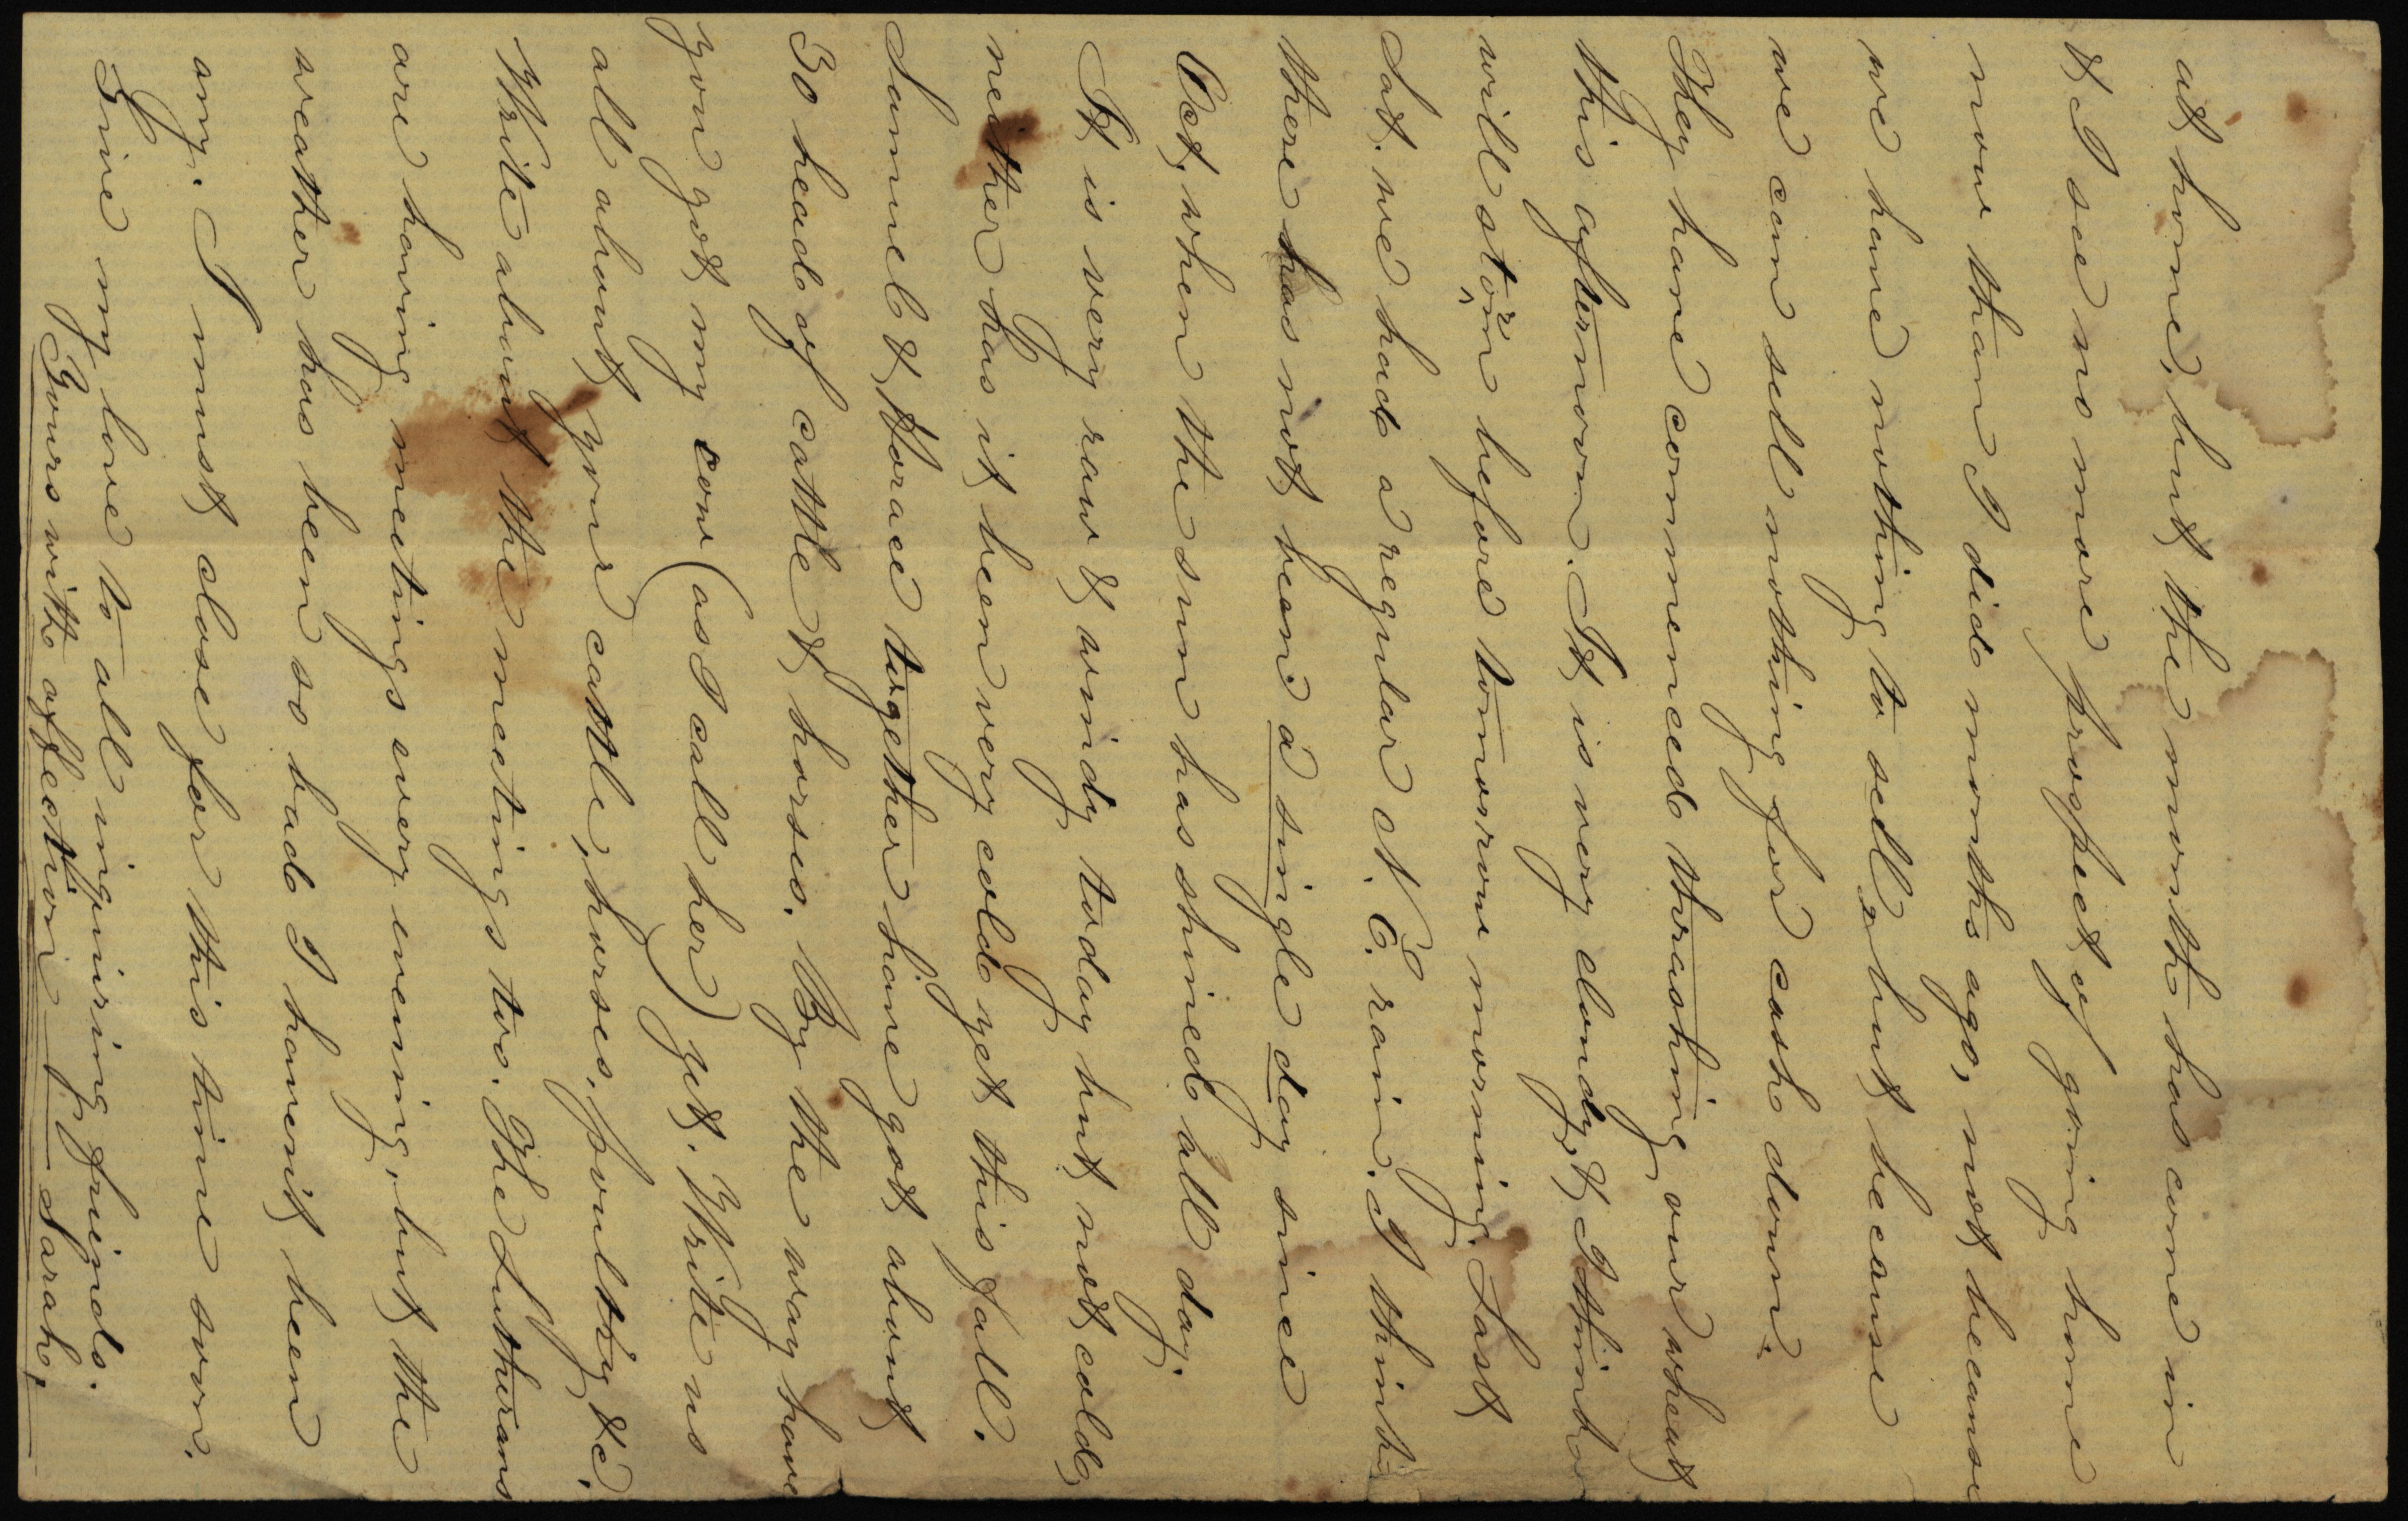 at home, but the month has come in
& I see no more prospect of going home
now than I did months ago, not because
we have nothing to sell, but because
we can sell nothing for cash down.
They have commenced thrashing our wheat
this afternoon. It is very cloudy, & I think
will storm before tomorrow morning. Last
Sat. we had a regular N. E. rain. I think
there has not been a single day since
Oct, when the sun has shined all day.
It is very raw & windy today but not cold,
neither has it been very cold yet this fall.
Samuel & Horace together have got about
30 head of cattle & horses. By the way have
you got my cow (as I call her) yet. Write us
all about your cattle, horses, poultry &c.
Write about the meetings too. The Lutherans
are having meetings every evening, but the
weather has been so bad I haven't been
any. I must close for this time soon.
Give my love to all inquiring friends.
Yours with affection Sarah,